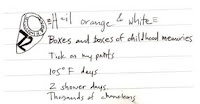 Hail orange & white
Boxes and boxes of childhood memories
Tick on my pants
105° F days
2 shower days.
Thousands of